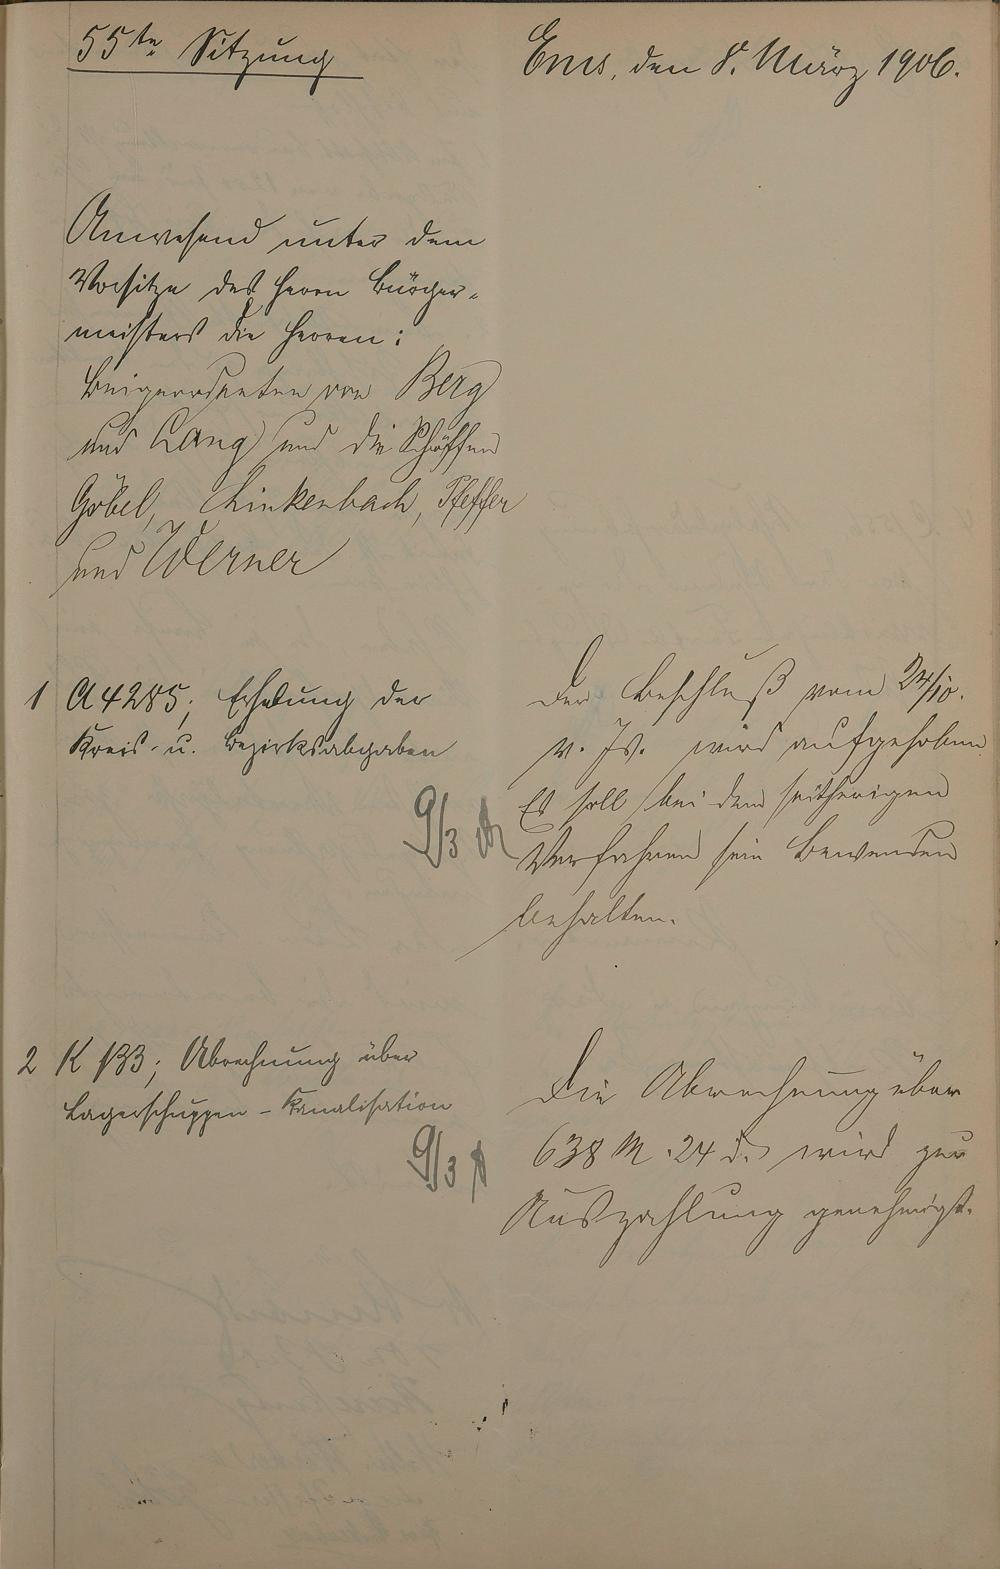 55te Sitzung
Ems, den 8. März 1906.
Anwesend unter dem
Vorsitze des Herrn Bürger-
meisters die Herren:
Beigeordneten von Berg
und Lang und die Schöffen
Göbel, Linkenbach, Pfeffer
und Werner
1 A 4285; Erhebung der
Kreis- u. Bezirksabgaben
9/3
Der Beschluß vom 24/10.
v. Js. wird aufgehoben
Es soll bei dem seitherigen
Verfahren sein Bewenden
behalten.
2 K 133; Abrechnung über
Lagerschuppen - Kanalisation
9/3
Die Abrechnung über
638 M. 24 d. wird zur
Auszahlung genehmigt.